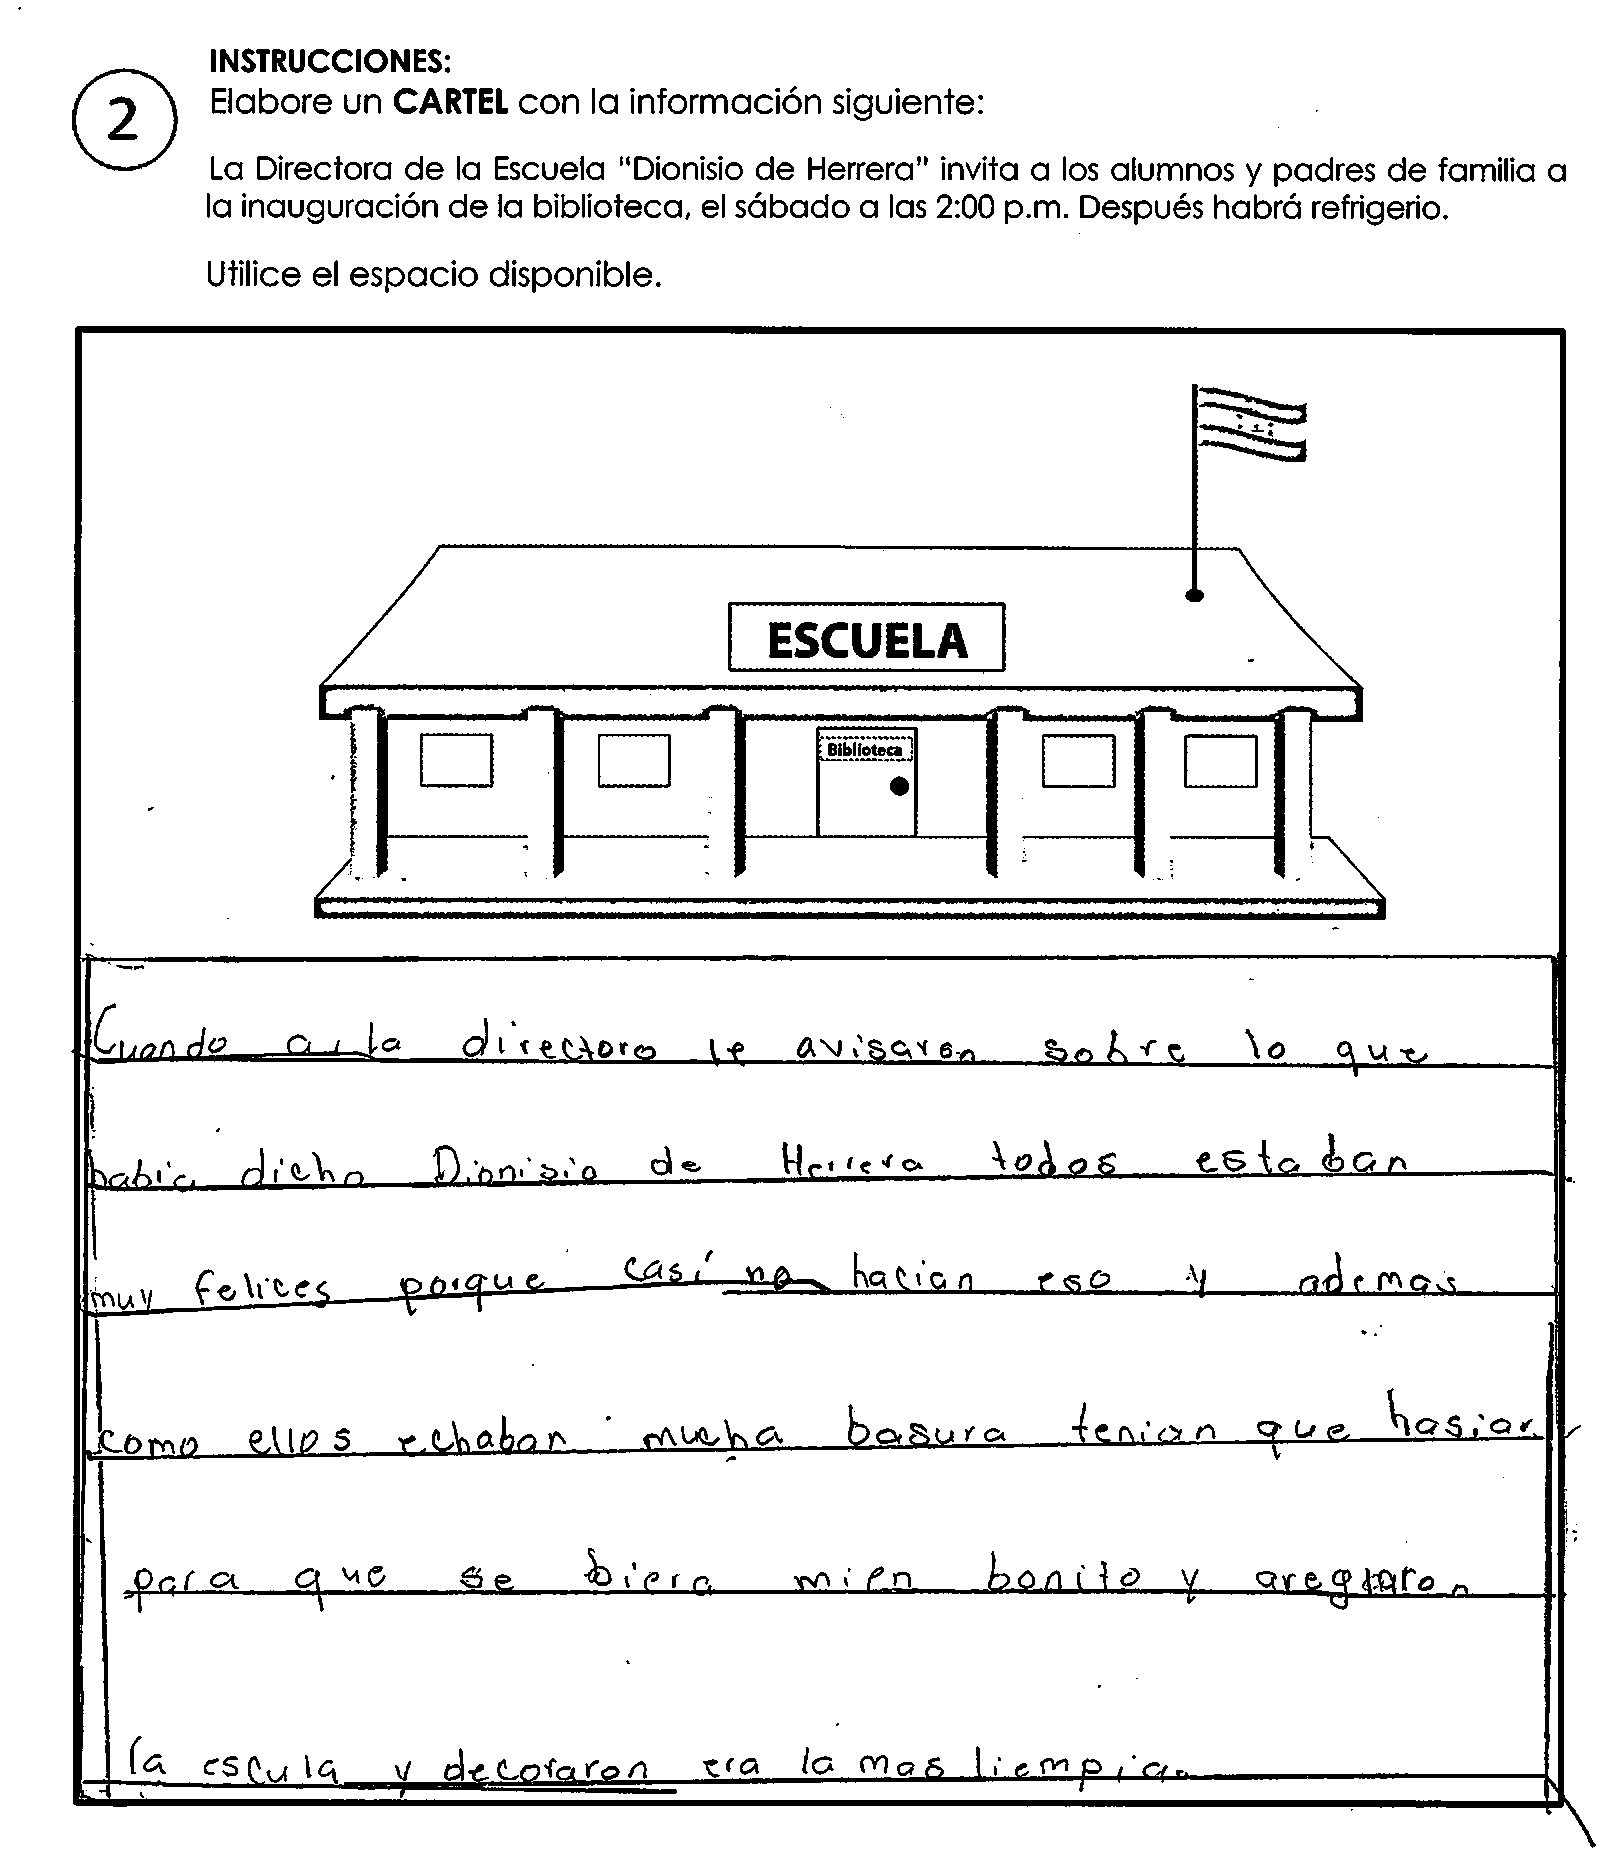 INSTRUCCIONES:
2
Elabore un CARTEL con la información siguiente:
La Directora de la Escuela "Dionisio de Herrera" invita a los alumnos y padres de familia a
la inauguración de la biblioteca, el sábado a las 2:00 p.m. Después habrá refrigerio.
Utilice el espacio disponible.
ESCUELA
Biblioteca
Cuando a la directora le avisaron sobre lo que
habia dicho Dionisio de Herrera todos estaban
muy felices porque casí no hacian eso y ademas
como ellos echaban mucha basura tenian que hasiar
para que se biera mien bonito y areglaron
la escula y decoraron era la mas liempia.